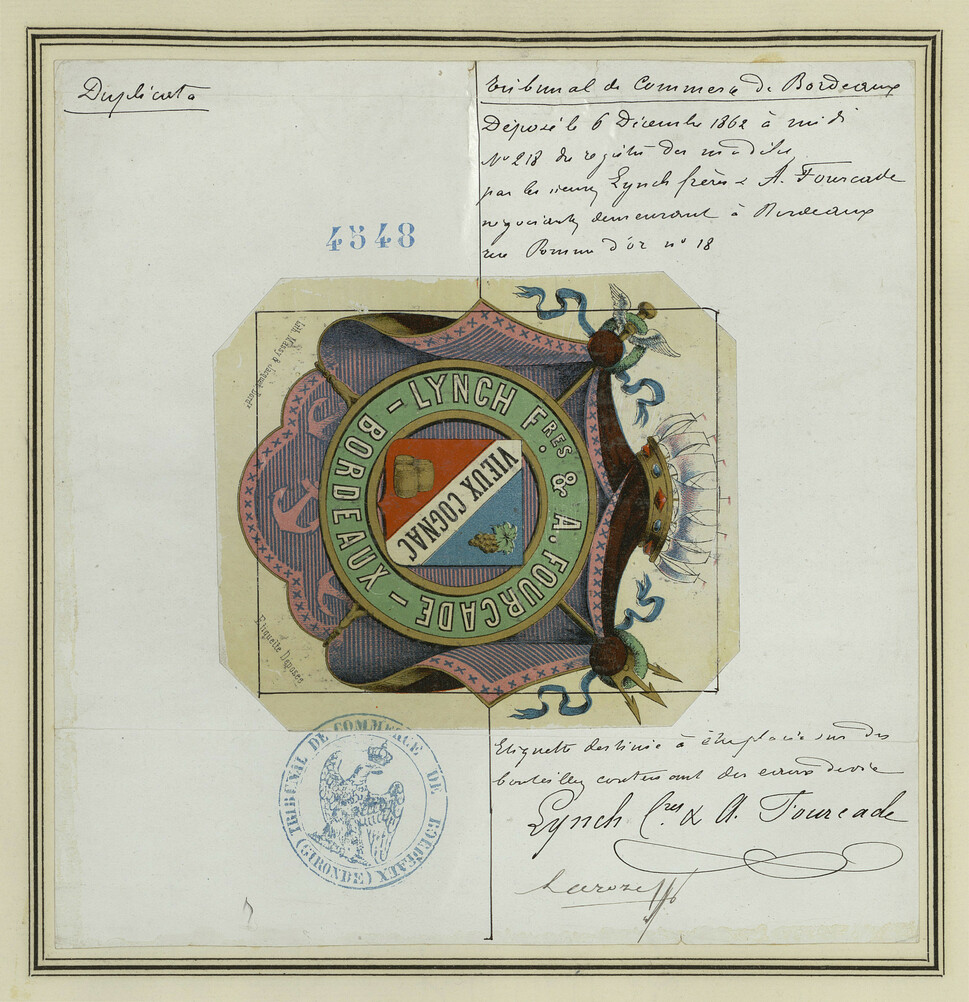 Duplicata
Tribunal de Commerce de Bordeaux
Déposé le 6 Décembre 1862 à midi
No 218 du registre des modèles
par les sieurs Lynch frères & A. Fourcade
négociants demeurant à Bordeaux
rue Pomme d'or no 18
4548
BORDEAUX - LYNCH FRES. & A. FOURCADE -
VIEUX COGNAC
Etiquette Déposée
Etiquette destinée à être placée sur des
bouteilles contenant des eaux de vie
Lynch fres & A. Fourcade
TRIBUNAL DE COMMERCE DE BORDEAUX
(GIRONDE)